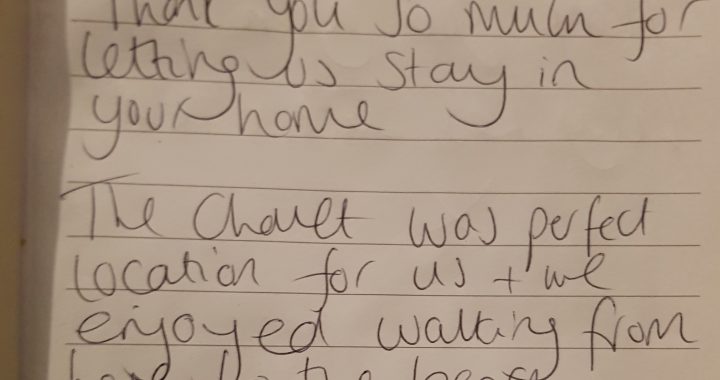 Thank you so much for
letting us stay in
your home
The Chalet was perfect
location for us + we
enjoyed walking from